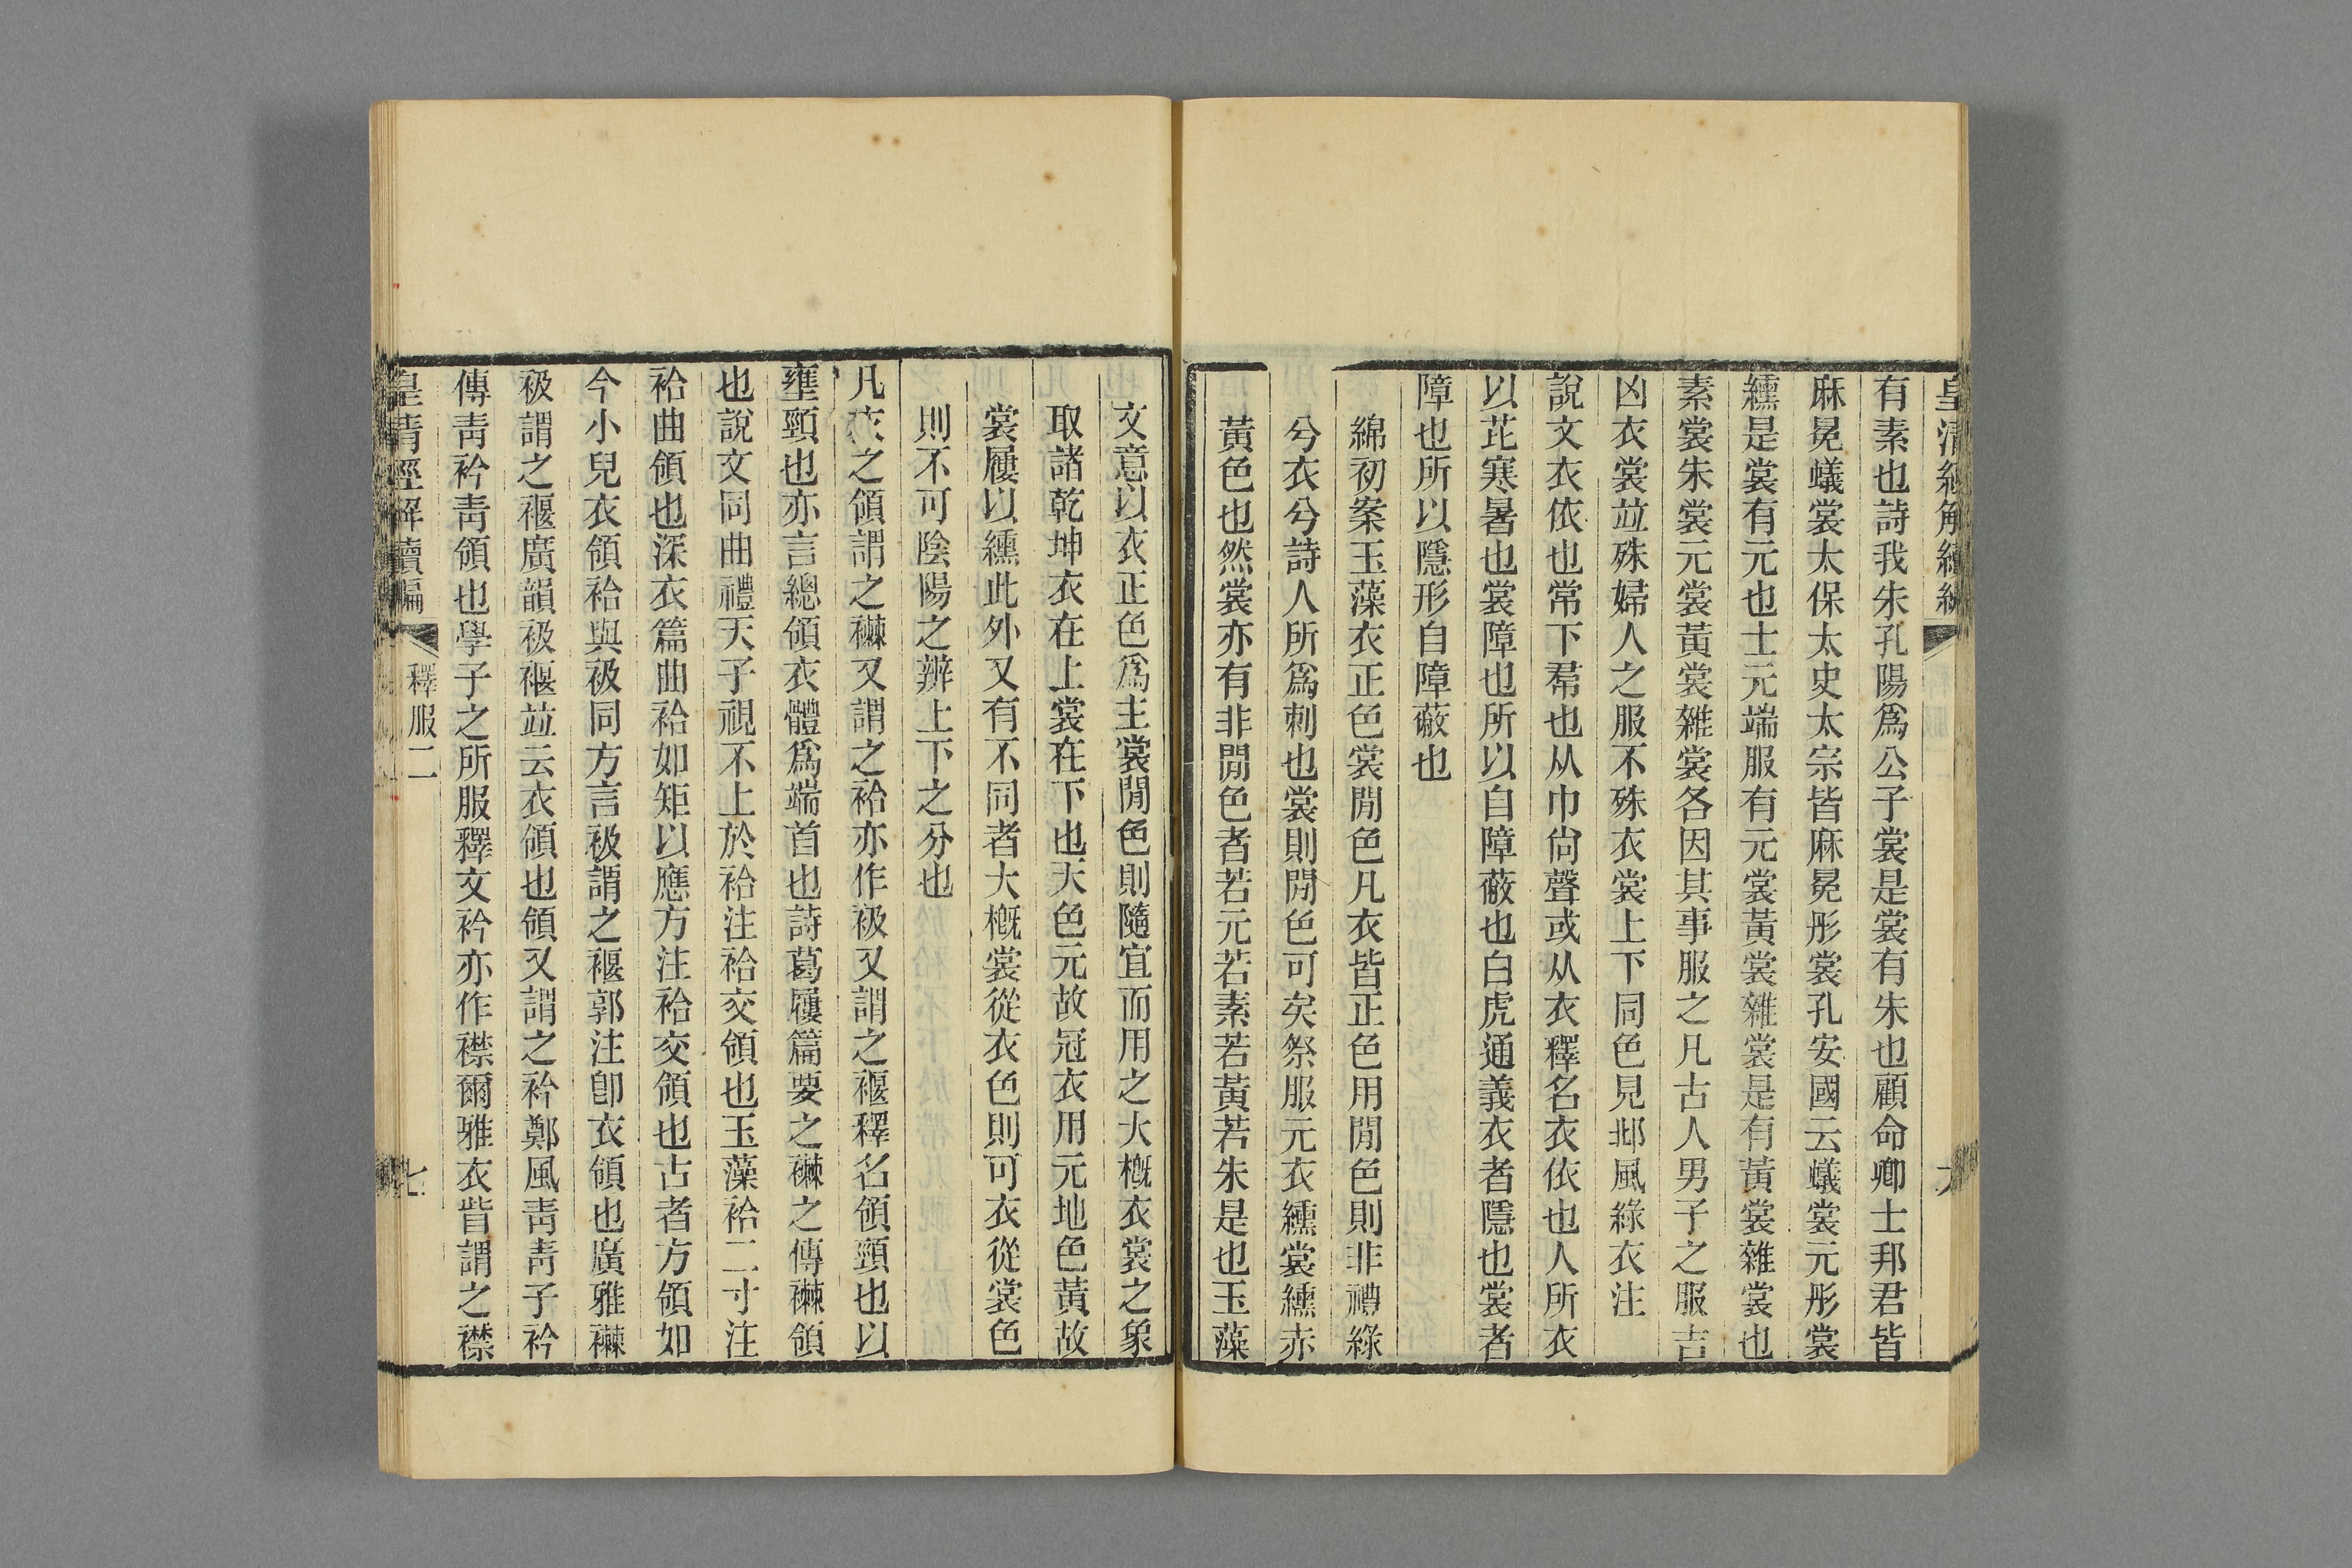 皇清經解續編
有素也詩我朱孔陽爲公子裳是裳有朱也顧命卿士邦君皆
麻冕蟻裳太保太史太宗皆麻冕彤裳孔安國云蟻裳元彤裳
纁是裳有元也士元端服有元裳黃裳雜裳是有黃裳雜裳也
素裳朱裳元裳黃裳雜裳各因其事服之凡古人男子之服吉
凶衣裳竝殊婦人之服不殊衣裳上下同色見邶風綠衣注
說文衣依也常下帬也从巾尙聲或从衣釋名衣依也人所衣
以芘寒暑也裳障也所以自障蔽也白虎通義衣者隱也裳者
障也所以隱形自障蔽也
綿初案玉藻衣正色裳閒色凡衣皆正色用閒色則非禮綠
兮衣兮詩人所爲刺也裳則閒色可矣祭服元衣纁裳纁赤
黃色也然裳亦有非閒色者若元若素若黃若朱是也玉藻
文意以衣正色爲主裳閒色則隨宜而用之大槪衣裳之象
取諸乾坤衣在上裳在下也天色元故冠衣用元地色黃故
裳屨以纁此外又有不同者大槪裳從衣色則可衣從裳色
則不可陰陽之辨上下之分也
凡衣之領謂之襋又謂之袷亦作衱又謂之褗釋名領頸也以
壅頸也亦言總領衣體爲端首也詩葛屨篇要之襋之傳襋領
也說文同曲禮天子視不上於袷注袷交領也玉藻袷二寸注
袷曲領也深衣篇曲袷如矩以應方注袷交領也古者方領如
今小兒衣領袷與衱同方言衱謂之褗郭注卽衣領也廣雅襋
衱謂之褗廣韻衱褗竝云衣領也領又謂之衿鄭風靑靑子衿
傳靑衿靑領也學子之所服釋文衿亦作襟爾雅衣眥謂之襟
皇清經解續編
釋服二
七